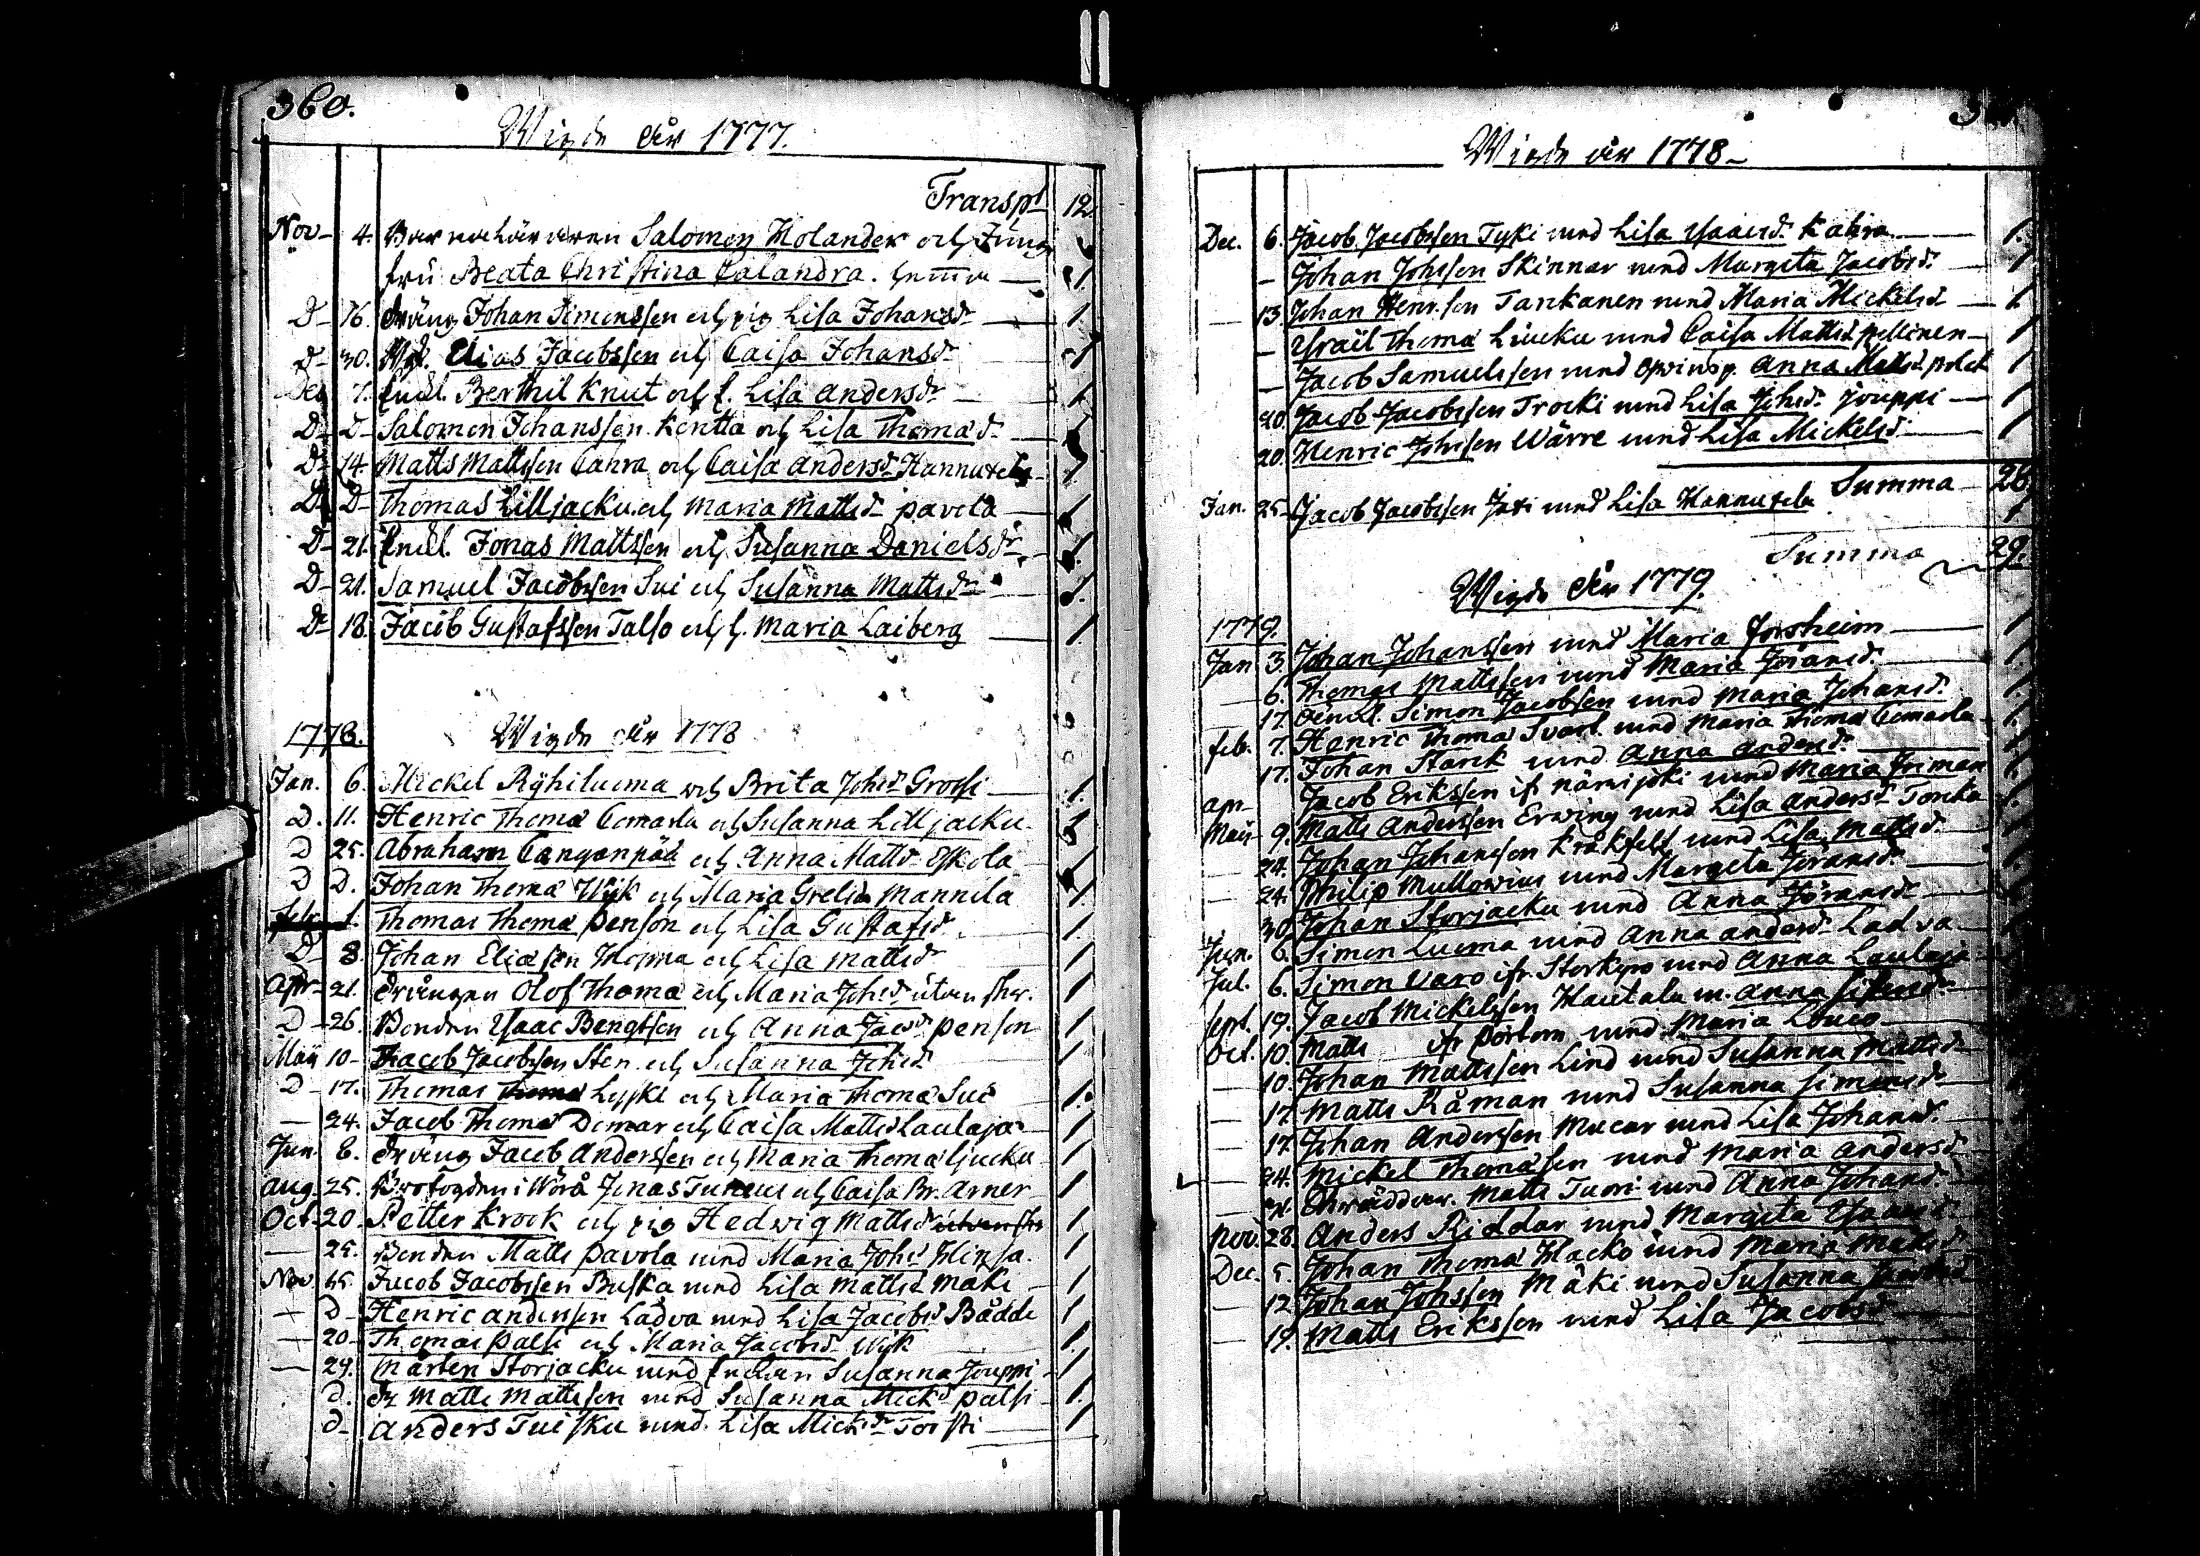 360.
Wigde År 1777.
Transpt 12
Nov 4. Salomon Holander och Jung
fru Beata Christina Calandra. hemma 1
D 16. Dräng Johan Simonssen och pig Lisa Johansdr 1
D 30. Elias Jacobssen och Caisa Johansdr 1
Dec 7. Berthil Knut och Lisa Andersdr 1
D D Salomon Johanssen Kentta och Lisa Thomædr
D 14. Matts Mattssen Cahra och Caisa Andersdr Hannuxela 1
D D Thomas Lilljacku och Maria Mattsdr pavola 1
D 21. Jonas Mattssen och Susanna Danielsdr 1
D 21. Samuel Jacobssen Sui och Susanna Mattsdr 1
D 18. Jacob Gustafssen Talso och h. Maria Laiberg 1
1778. Wigde År 1778
Jan. 6. Mickel Ryhiluoma och Brita Johsdr Grossi 1
D. 11. Henric Thomæ Comarla och Susanna Lilljacku
D 25. Abraham Cangonpää och Anna Mattsdr Eskola 1
D D. Johan Thomæ Wijk och Maria Grelsdr Mannila 1
feb. 1. Thomas Thomæ Penson och Lisa Gustafsdr 1
D 8. Johan Eliæsen och Lisa Mattsdr 1
Apr 21. Drängen Olof Thomæ och Maria Johsdr utan skr. 1
D 26. Bonden Isaac Bengtsen och Anna Jacsdr penson 1
Maij 10 Jacob Jacobssen Sten och Susanna Johsdr 1
D 17. Thomas Lyski och Maria Thomæ Sui 1
24. Jacob Thomæ Domar och Caisa Mattsdr Laulaja 1
Jun. 8. Dräng Jacob Anderssen och Maria Thomæ ljucku 1
Aug. 25. Brofogden i Wörå Jonas Tuneus och Caisa Br. Arner 1
Oct. 20. Petter Krook och pig Hedwig Mattsdr utan skr 1
25. Bonden Matts pavola med Maria Johsdr Hinsa 1
Nov 15. Jacob Jacobssen Buska med Lisa Mattsdr Mäki 1
D Henric Anderssen Ladva med Lisa Jacobsdr Bådde 1
20 Thomas Palsi och Maria Jacobsdr Wijk 1
29. Mårten Storjacku med Enckan Susanna Jouppi 1
D. Dr Matts Mattssen med Susanna Micksdr palsi 1
D Anders Tuisku med Lisa Micksdr Torsti 1
Wigde år 1778
Dec. 6. Jacob Jacobssen Tyki med Lisa Isaacsdr Kahra 1.
Johan Johssen Skinnar med Margeta Jacobsdr 1
13. Johan Henr.sen Tarckanen med Maria Mickelsdr 1
Israël Thomæ Liucku med Caisa Mattsdr pellinen 1
Jacob Samuelssen med Anna Mattsdr 1
20. Jacob Jacobssen Trocki med Lisa Johsdr Jouppi 1
20. Henric Johssen Wärre med Lisa Mickelsdr 1
Summa 28
Jan. 25. Jacob Jacobssen med Lisa Hannuxela 1
Summa 29.
Wigde År 1779.
1779.
Jan 3. Johan Johanssen med Maria Forsheim 1
6. Thomas Mattssen med Maria Jöransdr 1
17. Simon Jacobssen med Maria Johansdr 1
feb. 7. Henric Thomæ Svart med Maria Thomæ Comarla 1
17. Johan Starck med Anna Andersdr
apr Jacob Erikssen ifr närijoki med Maria Friman
Maij 9. Matts Anderssen Erwing med Lisa Andersdr Toncka
24. Johan Johanssen Kråkfelt med Lisa Mattsdr
24. Philip Mullovius med Margeta Jöransdr
30. Johan Storjacku med Anna Jöransdr
Jun. 6. Simon Luoma med Anna Andersdr Ladva
Jul. 6. Simon Varo ifr. Storkyro med Anna Laulaja
Sept. 19. Jacob Mickelssen Hautala m. Anna
Oct. 10. Matts ifr Pörtom med Maria Louco
10. Johan Mattssen Lind med Susanna Mattsdr
17. Matts Råman med Susanna Simonsdr
17. Johan Anderssen Mucar med Lisa Johansdr
24. Mickel Thomæsen med Maria Andersdr
Skräddar. Matts Tuori med Anna Johansdr
Nov. 28. Anders Riddar med Margeta Isaacsdr
Dec. 5. Johan Thomæ Hacko med Maria Mattsdr
12. Johan Johssen Mäki med Susanna
19. Matts Erikssen med Lisa Jacobsdr